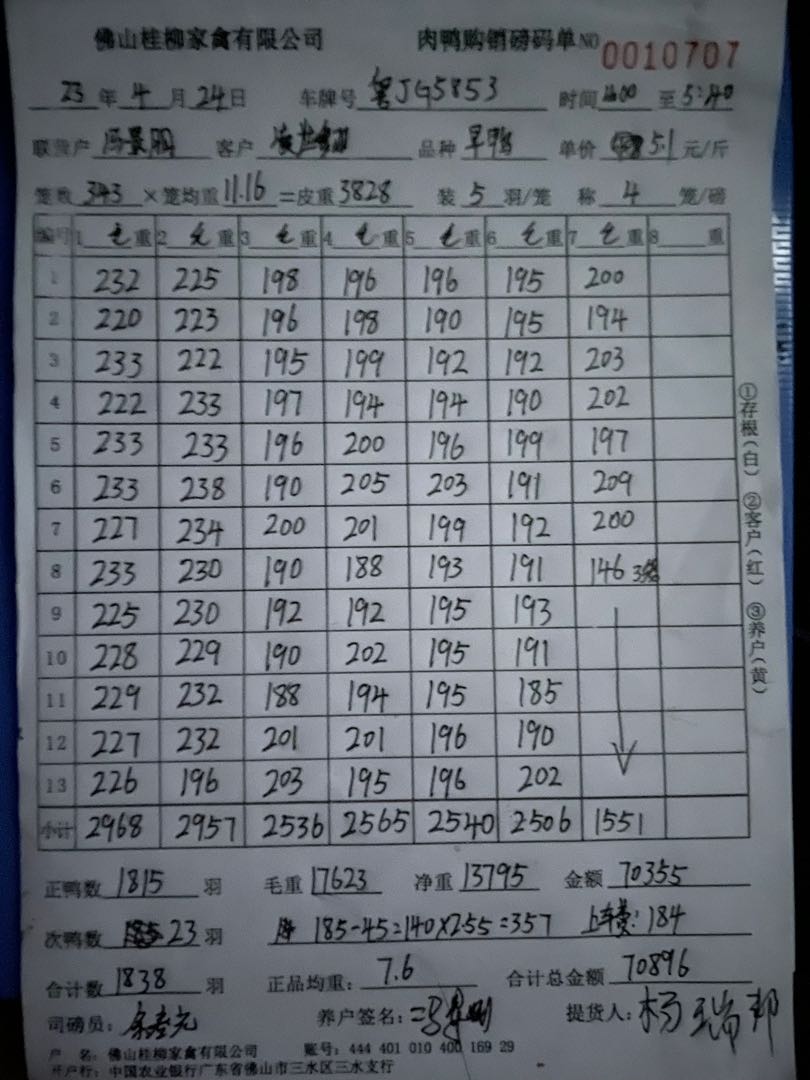 佛山桂柳家禽有限公司 肉鸭购销磅码单 NO 0010707
23 年 4 月 24 日 车牌号 粤JG5853 时间 1600 至 5:40
联营户 冯景明 客户 品种 早鸭 单价 5.1 元/斤
笼数 343 ×笼均重 11.16 =皮重 3828 装 5 羽/笼 称 4 笼/磅
编号 1 毛重 2 毛重 3 毛重 4 毛重 5 毛重 6 毛重 7 毛重 8 重
1 232 225 198 196 196 195 200
2 220 223 196 198 190 195 194
3 233 222 195 199 192 192 203
4 222 233 197 194 194 190 202
5 233 233 196 200 196 199 197
6 233 238 190 205 203 191 209
7 227 234 200 201 199 192 200
8 233 230 190 188 193 191 146 3笼
9 225 230 192 192 195 193
10 228 229 190 202 195 191
11 229 232 188 194 195 185
12 227 232 201 201 196 190
13 226 196 203 195 196 202
小计 2968 2957 2536 2565 2540 2506 1551
正鸭数 1815 羽 毛重 17623 净重 13795 金额 70355
次鸭数 23 羽 185-45=140×255=357 上车费:184
合计数 1838 羽 正品均重: 7.6 合计总金额 70896
司磅员: 养户签名: 冯景明 提货人: 杨瑞邦
户 名: 佛山桂柳家禽有限公司 账号: 444 401 010 400 169 29
开户行: 中国农业银行广东省佛山市三水区三水支行
①存根(白) ②客户(红) ③养户(黄)